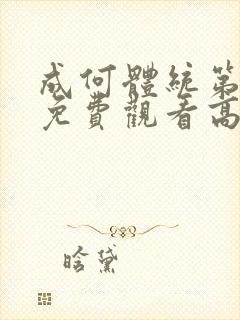 成何體統第
免費觀看高
晗黛